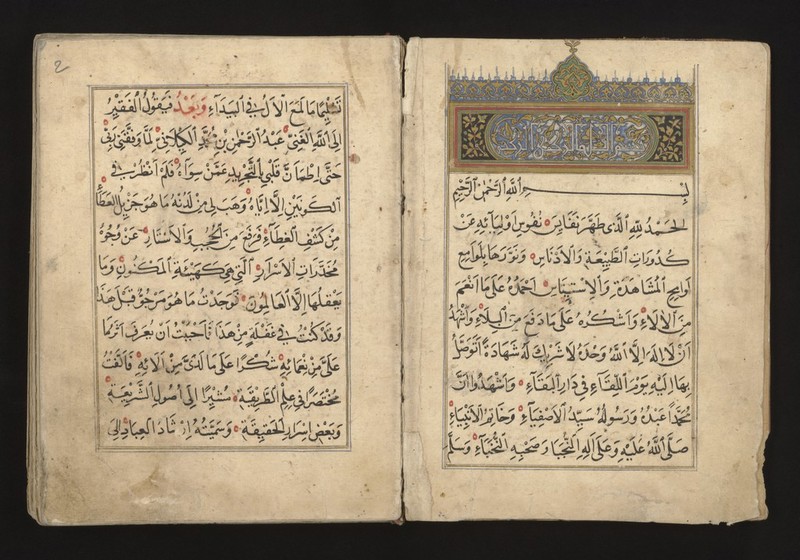 بسم الله الرحمن الرحيم
الحمد لله الذي طهر نفايس نفوس اوليائه عن
كدورات الطبيعة والادناس ونورها بلوامع
لوايح المشاهدة والاستيناس احمده على ما انعم
من الالاء واشكره على ما دفع من البلاء واشهد
ان لا اله الا الله وحده لا شريك له شهادة اتوصل
بها اليه يوم اللقاء في دار البقاء واشهد ان
محمدا عبده ورسوله سيد الاصفياء وخاتم الانبياء
صلى الله عليه وعلى اله النجبا وصحبه النخباء وسلم
2
تسليما ما لمع الال في البيداء وبعد فيقول الفقير
الى الله الغني عبد الرحمن بن محمد لما وفقني ربي
حتى اطمان قلبي بالتجريد عمن سواء فلم انظر في
الكونين الا اياه وهب لي من لدنه ما هو جزيل العطاء
من كشف الغطاء فرفع من الحجب والاستار عن وجوه
مخدرات الاسرار التي هي كهيئة المكنون وما
يعقلها الا العالمون فوجدت ما هو مرجو قبل هذا
وقد كنت في غفلة من هذا فاحببت ان يعرف اثر ما
علي من نعمائه شكرا على ما لدي من الائه فالفت
مختصرا في علم الطريقة مشيرا الى اصول الشريعة
وبعض اسرار الحقيقة وسميته ارشاد العباد الى